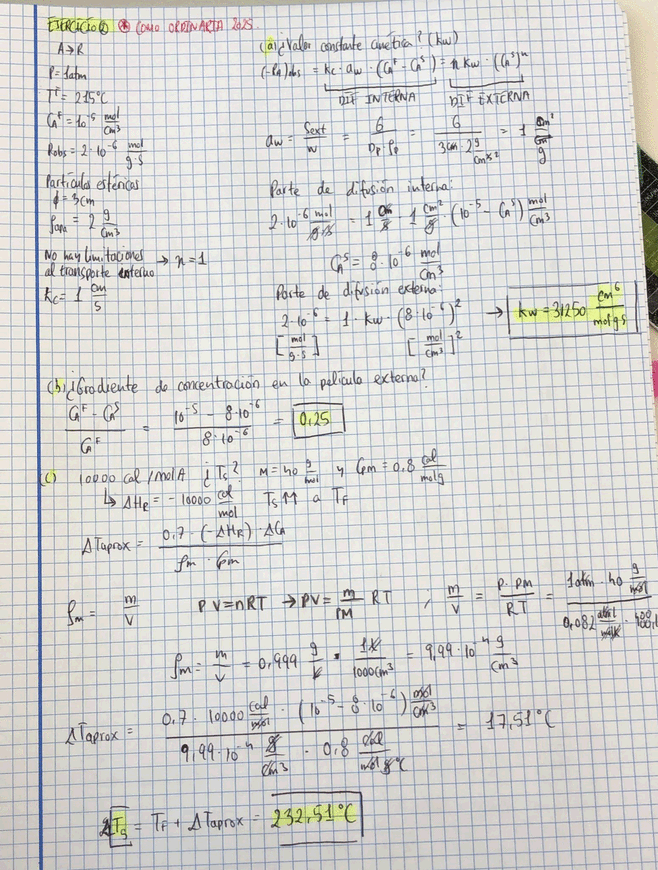 EJERCICIO 2 * COMO ORDINARIA 2025.
A → R
P = 1 atm
T^F = 215°C
C_A^F = 10^-5 mol/cm³
R_obs = 2·10^-6 mol/g·s
Partículas esféricas
ϕ = 3 cm
ρ_apa = 2 g/cm³
No hay limitaciones al transporte interno → n = 1
k_c = 1 cm/s
(a) ¿Valor constante cinética? (kw)
(-R_A)obs = k_c · a_w · (C_A^F - C_A^S) = n kw · (C_A^S)^n
DIF INTERNA DIF EXTERNA
a_w = Sext/W = 6/(Dp·ρp) = 6/(3cm · 2 g/cm³) = 1 cm²/g
Parte de difusión interna:
2·10^-6 mol/g·s = 1 cm/s · 1 cm²/g · (10^-5 - C_A^S) mol/cm³
C_A^S = 8·10^-6 mol/cm³
Parte de difusión externa:
2·10^-6 = 1 · kw · (8·10^-6)² → kw = 31250 cm⁶/mol g·s
[mol/g·s] [mol/cm³]²
(b) ¿Gradiente de concentración en la película externa?
(C_A^F - C_A^S)/C_A^F = (10^-5 - 8·10^-6)/(8·10^-6) = 0,25
(c) 10000 cal/mol A ¿Ts? M = 40 g/mol y Cpm = 0,8 cal/molg
↳ ΔH_R = -10000 cal/mol Ts ↑↑ a T_F
ΔTaprox = 0,7 · (-ΔH_R) · ΔC_A/(ρm · Cpm)
ρm = m/V PV = nRT → PV = m/PM RT , m/V = P·PM/RT = 1 atm · 40 g/mol
ρm = m/V = 0,999 g/L · 1L/1000cm³ = 9,99·10^-4 g/cm³
ΔTaprox = 0,7 · 10000 cal/mol · (10^-5 - 8·10^-6) mol/cm³/(9,99·10^-4 g/cm³ · 0,8 cal/mol g °C) = 17,51°C
Ts = T_F + ΔTaprox = 232,51°C